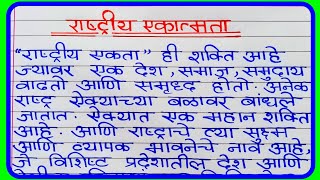 राष्ट्रीय एकात्मता
"राष्ट्रीय एकता" ही शक्ति आहे
ज्यावर एक देश, समाज, समुदाय
वाढतो आणि समृध्द होतो. अनेक
राष्ट्र ऐक्याच्या बळावर बांधले
जातात. ऐक्यात एक महान शक्ति
आहे. आणि राष्ट्राचे त्या सुक्ष्म
आणि व्यापक भावनेचे नाव आहे,
जे विशिष्ट प्रदेशातील देश आणि